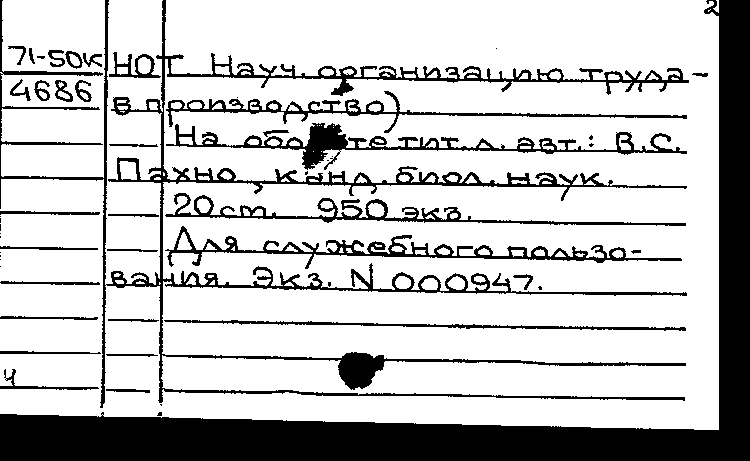 2
71-50к НОТ Науч. организацию труда-
4686 в производство).
На обороте тит. л. авт.: В.С.
Пахно, канд. биол. наук.
20 cm. 950 экз.
Для служебного пользо-
вания. Экз. N 000947.
4